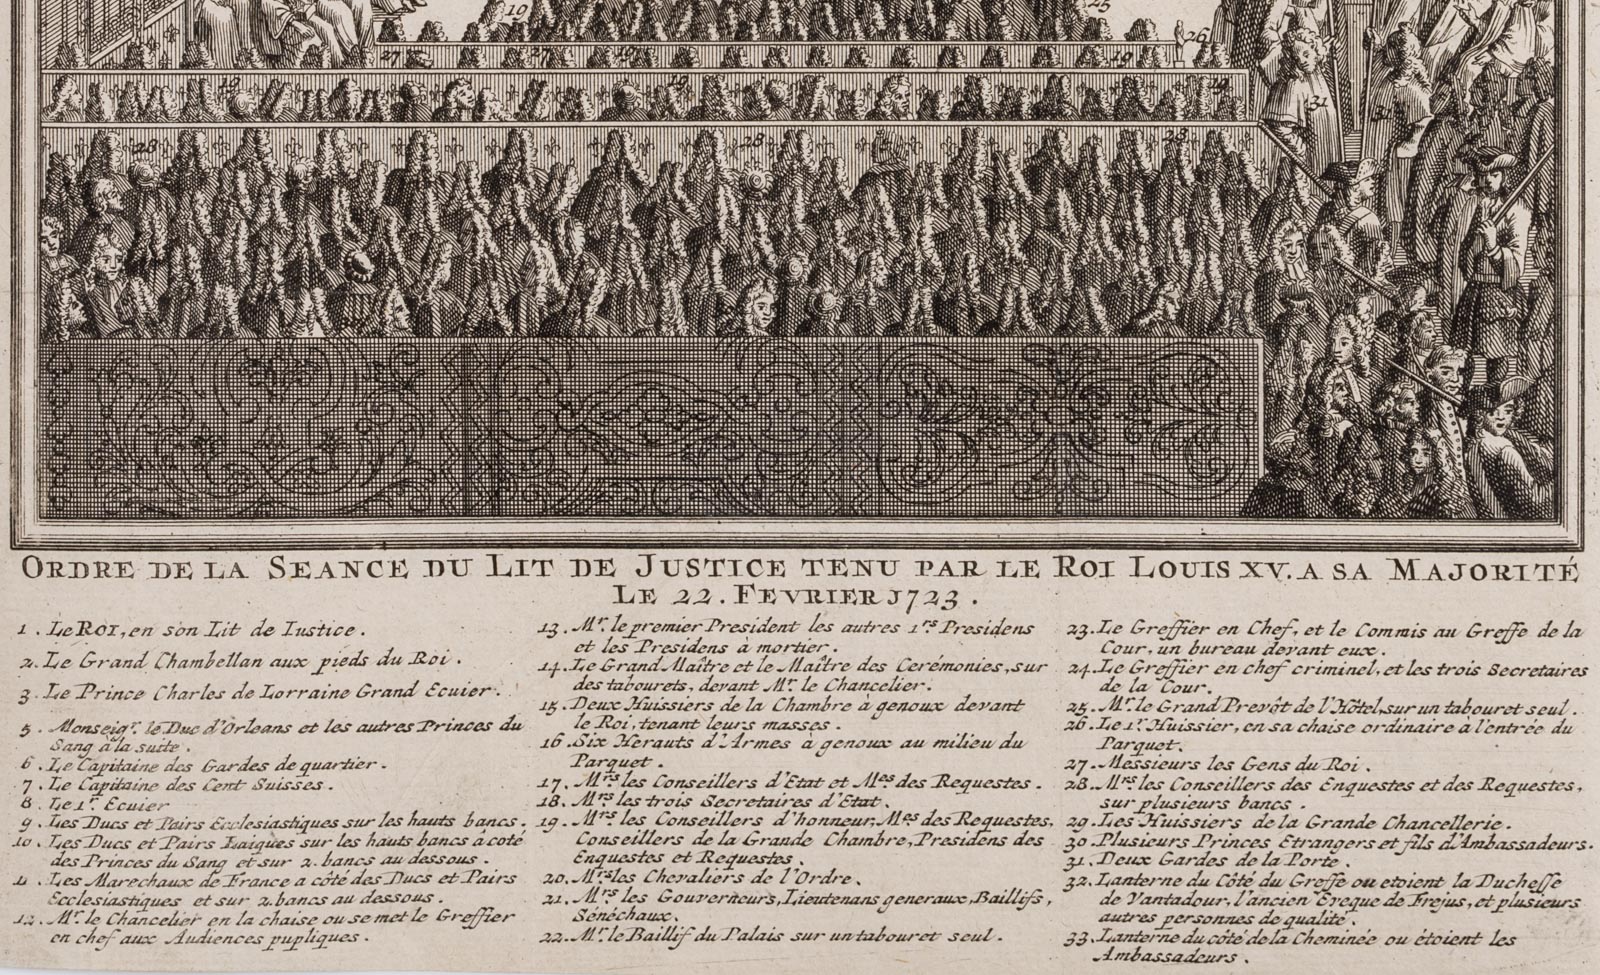 19
25
27
27
19
19
26
19
19
19
31
31
28
28
28
ORDRE DE LA SEANCE DU LIT DE JUSTICE TENU PAR LE ROI LOUIS XV. A SA MAJORITÉ
LE 22. FEVRIER 1723.
1. Le ROI, en son Lit de Iustice.
2. Le Grand Chambellan aux pieds du Roi.
3. Le Prince Charles de Lorraine Grand Ecuier.
5. Monseigr. le Duc d'Orleans et les autres Princes du
Sang à la suite.
6. Le Capitaine des Gardes de quartier.
7. Le Capitaine des Cent Suisses.
8. Le 1r. Ecuier
9. Les Ducs et Pairs Ecclesiastiques sur les hauts bancs.
10. Les Ducs et Pairs Laiques sur les hauts bancs à coté
des Princes du Sang et sur 2. bancs au dessous.
11. Les Marechaux de France a côté des Ducs et Pairs
Ecclesiastiques et sur 2. bancs au dessous.
12. Mr. le Chancelier en la chaise ou se met le Greffier
en chef aux Audiences pupliques.
13. Mr. le premier President les autres 1rs Presidens
et les Presidens à mortier.
14. Le Grand Maître et le Maître des Cerémonies, sur
des tabourets, devant Mr. le Chancelier.
15. Deux Huissiers de la Chambre à genoux devant
le Roi, tenant leurs masses.
16. Six Herauts d'Armes à genoux au milieu du
Parquet.
17. Mrs les Conseillers d'Etat et Mes des Requestes.
18. Mrs les trois Secretaires d'Etat.
19. Mrs les Conseillers d'honneur, Mes des Requestes,
Conseillers de la Grande Chambre, Presidens des
Enquestes et Requestes.
20. Mrs les Chevaliers de l'Ordre.
21. Mrs les Gouverneurs, Lieutenans generaux, Baillifs,
Sénéchaux.
22. Mr. le Baillif du Palais sur un tabouret seul.
23. Le Greffier en Chef, et le Commis au Greffe de la
Cour, un bureau devant eux.
24. Le Greffier en chef criminel, et les trois Secretaires
de la Cour.
25. Mr. le Grand Prevôt de l'Hôtel, sur un tabouret seul.
26. Le 1r. Huissier, en sa chaise ordinaire à l'entrée du
Parquet.
27. Messieurs les Gens du Roi.
28. Mrs les Conseillers des Enquestes et des Requestes,
sur plusieurs bancs.
29. Les Huissiers de la Grande Chancellerie.
30. Plusieurs Princes Etrangers et fils d'Ambassadeurs.
31. Deux Gardes de la Porte.
32. Lanterne du Côté du Greffe ou etoient la Duchesse
de Vantadour, l'ancien Eveque de Frejus, et plusieurs
autres personnes de qualité.
33. Lanterne du côté de la Cheminée ou étoient les
Ambassadeurs.